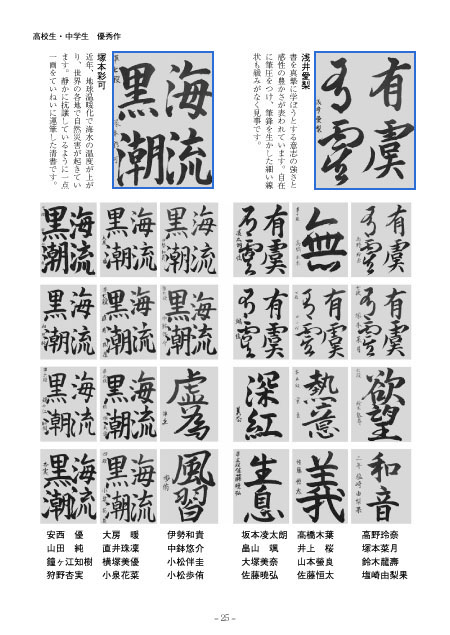 高校生・中学生　優秀作
有虞
浅井愛梨
書を真摯に学ぼうとする意志の強さと
感性の豊かさが表われています。自在
に筆圧をつけ、筆鋒を生かした細い線
状も緩みがなく見事です。
海流
黒潮
塚本彩可
近年、地球温暖化で海水の温度が上が
り、世界の各地で自然災害が起きてい
ます。静かに抗議しているように一点
一画をていねいに運筆した清書です。
有虞
無
有虞
海流
黒潮
海流
黒潮
海流
黒潮
有虞
有虞
有虞
海流
黒潮
海流
黒潮
海流
黒潮
欲望
熱意
深紅
虚為
海流
黒潮
海流
黒潮
和音
義
生息
風習
海流
黒潮
海流
黒潮
安西　優　大房　暖　伊勢和貴　坂本凌太朗　高橋木葉　高野玲奈
山田　純　直井珠凜　中鉢悠介　畠山　颯　井上　桜　塚本菜月
鐘ヶ江知樹　横塚美優　小松伴圭　大塚美奈　山本螢良　鈴木龍壽
狩野杏実　小泉花菜　小松歩侑　佐藤暁弘　佐藤恒太　塩崎由梨果
- 25 -